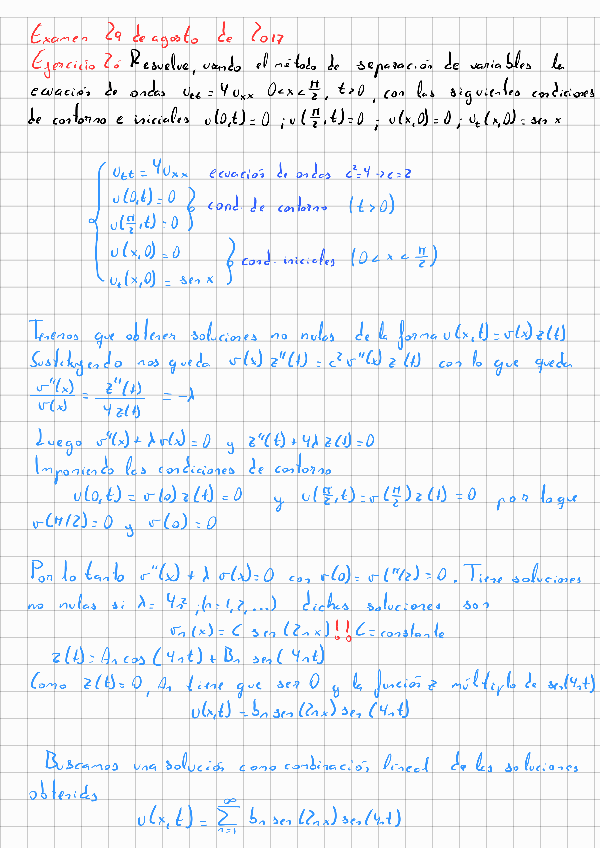 Examen 29 de agosto de 2017
Ejercicio 2: Resuelve, usando el método de separación de variables la
ecuación de ondas u_tt = 4u_xx 0<x<π/2, t>0, con las siguientes condiciones
de contorno e iniciales u(0,t)=0 ; u(π/2,t)=0 ; u(x,0)=0 ; u_t(x,0)=sen x
u_tt = 4u_xx ecuación de ondas c²=4→c=2
u(0,t)=0
u(π/2,t)=0 } cond. de contorno (t>0)
u(x,0)=0
u_t(x,0) = sen x } cond. iniciales (0<x<π/2)
Tenemos que obtener soluciones no nulas de la forma u(x,t)=v(x)z(t)
Sustituyendo nos queda v(x)z''(t)=c²v''(x)z(t) con lo que queda
v''(x)/v(x) = z''(t)/4z(t) = -λ
Luego v''(x)+λv(x)=0 y z''(t)+4λz(t)=0
Imponiendo las condiciones de contorno
u(0,t)=v(0)z(t)=0 y u(π/2,t)=v(π/2)z(t)=0 por lo que
v(π/2)=0 y v(0)=0
Por lo tanto v''(x)+λv(x)=0 con v(0)=v(π/2)=0. Tiene soluciones
no nulas si λ=4n² ;(n=1,2,...) dichas soluciones son
v_n(x)=C sen(2nx)!! C=constante
z(t)=A_n cos(4nt)+B_n sen(4nt)
Como z(t)=0, A_n tiene que ser 0 y la función z múltiplo de sen(4nt)
u(x,t)=b_n sen(2nx)sen(4nt)
Buscamos una solución como combinación lineal de las soluciones
obtenidas
u(x,t) = ∑_{n=1}^{∞} b_n sen(2nx)sen(4nt)